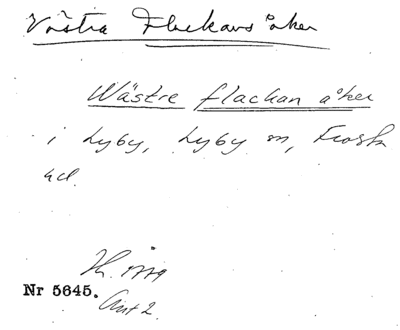 Västra Flackans åker
Wästre flackan åker
i Lyby, Lyby sn, Frosta
hd.
Nr 5645.
Ant 2.